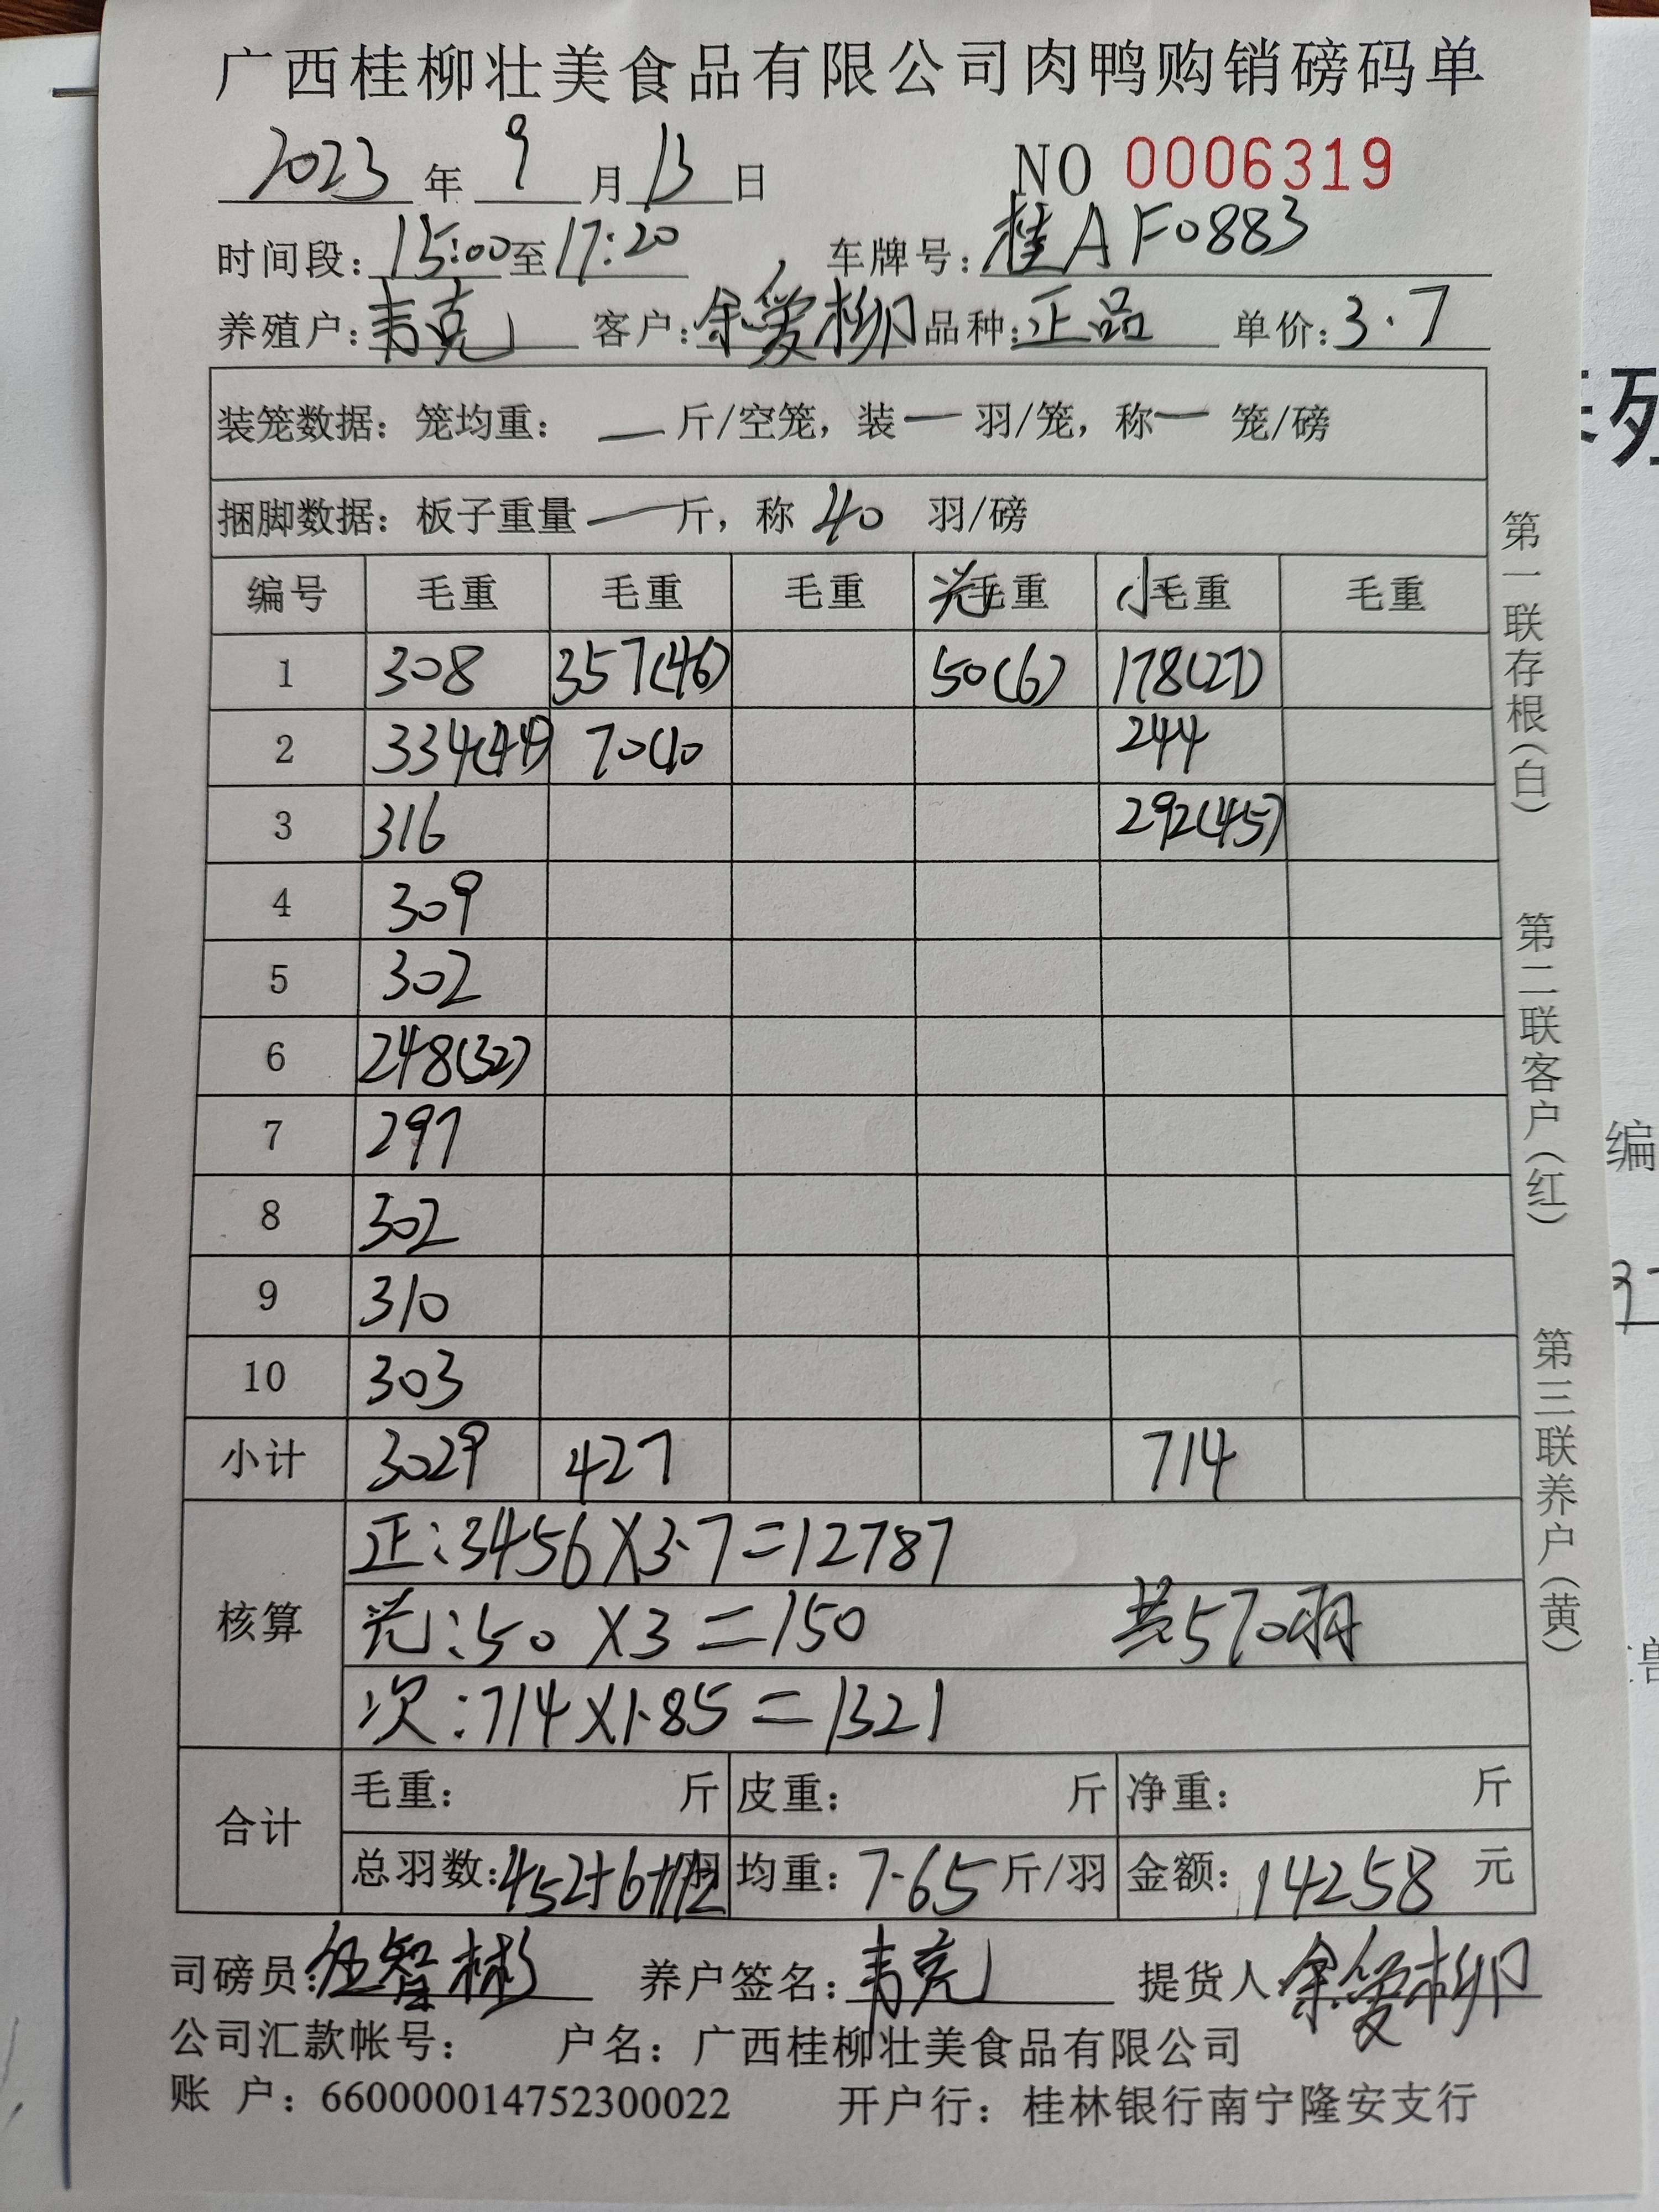 广西桂柳壮美食品有限公司肉鸭购销磅码单
2023 年 9 月 13 日 NO 0006319
时间段: 15:00 至 17:20 车牌号: 桂A F0883
养殖户: 韦克 客户: 余爱柳 品种: 正品 单价: 3.7
装笼数据: 笼均重: — 斤/空笼, 装 — 羽/笼, 称 — 笼/磅
捆脚数据: 板子重量 — 斤, 称 40 羽/磅
编号 毛重 毛重 毛重 光毛重 小毛重 毛重
1 308 357(46) 50(6) 178(27)
2 334(44) 70(10 244
3 316 292(45)
4 309
5 302
6 248(32)
7 297
8 302
9 310
10 303
小计 3029 427 714
核算
正:3456×3.7=12787
光:50×3=150 共570羽
次:714×1.85=1321
合计
毛重: 斤 皮重: 斤 净重: 斤
总羽数:452+6+112羽 均重: 7.65 斤/羽 金额: 14258 元
司磅员: 伍智彬 养户签名: 韦克 提货人 余爱柳
公司汇款帐号: 户名: 广西桂柳壮美食品有限公司
账 户: 660000014752300022 开户行: 桂林银行南宁隆安支行
第一联存根(白)
第二联客户(红)
第三联养户(黄)
列
编